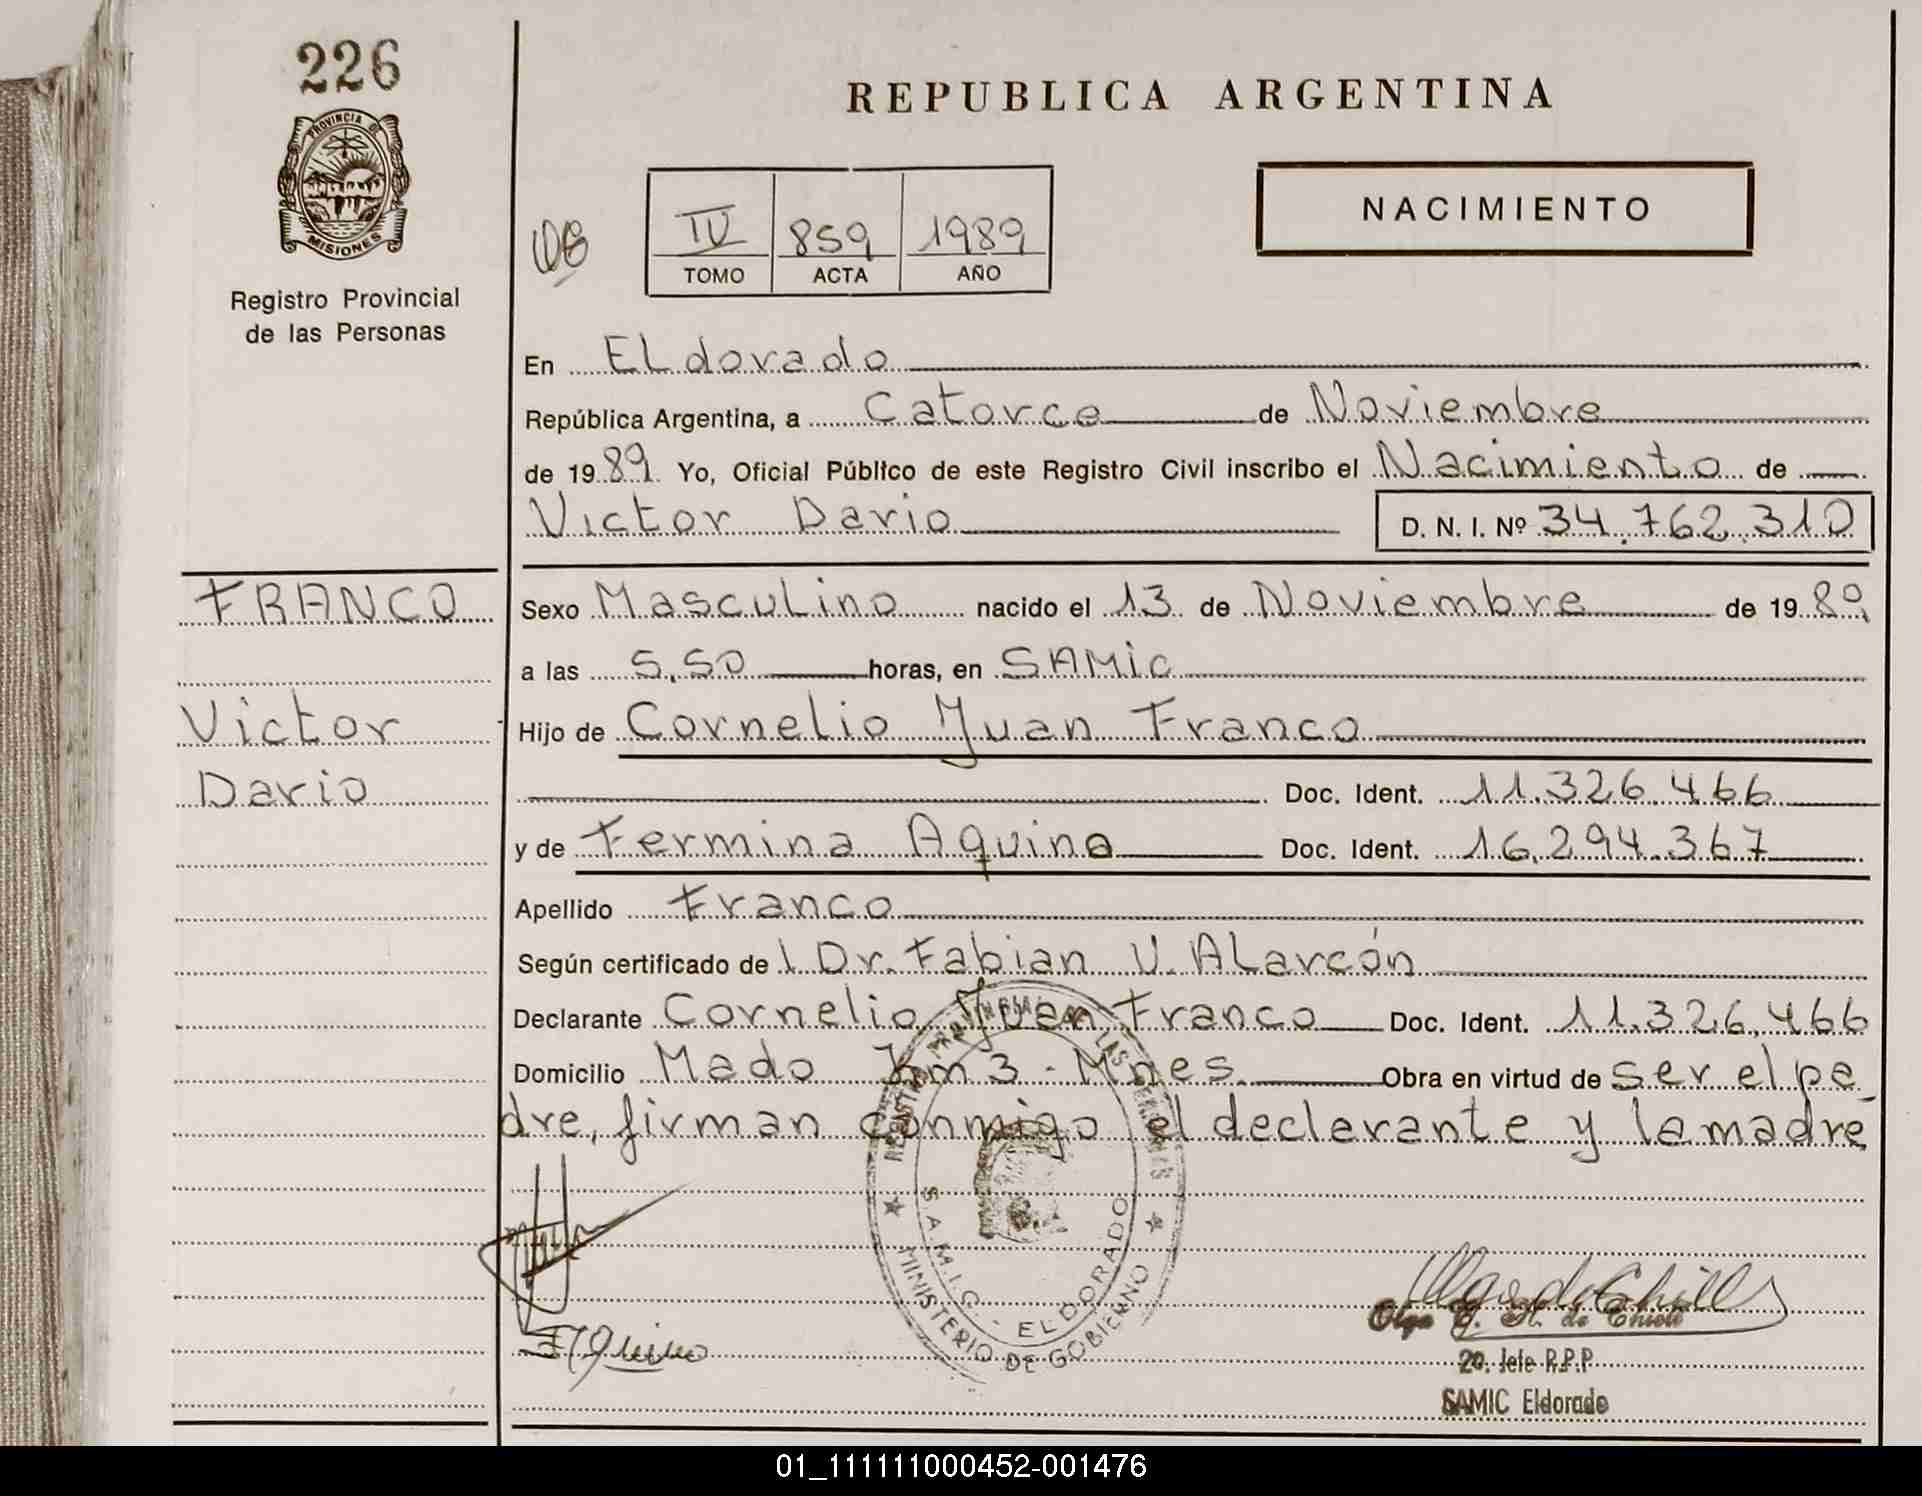 226
PROVINCIA DE
MISIONES
Registro Provincial
de las Personas
REPUBLICA ARGENTINA
NACIMIENTO
IV 859 1989
TOMO ACTA AÑO
En ELdorado
República Argentina, a Catorce de Noviembre
de 1989. Yo, Oficial Público de este Registro Civil inscribo el Nacimiento de
Victor Dario D. N. I. Nº 34.762.310
FRANCO
Victor
Dario
Sexo MascuLino nacido el 13 de Noviembre de 1989
a las 5,50 horas, en SAMic
Hijo de Cornelio Juan Franco
Doc. Ident. 11.326.466
y de Fermina Aquino Doc. Ident. 16.294.367
Apellido Franco
Según certificado del Dr. Fabian V. ALarcón
Declarante Cornelio Juan Franco Doc. Ident. 11.326.466
Domicilio Mado Km 3 - Mnes. Obra en virtud de ser el pa
dre, firman conmigo el declarante y la madre
S.A.M.I.C. - ELDORADO
MINISTERIO DE GOBIERNO
2o. Jefe R.P.P
SAMIC Eldorado
01_111111000452-001476